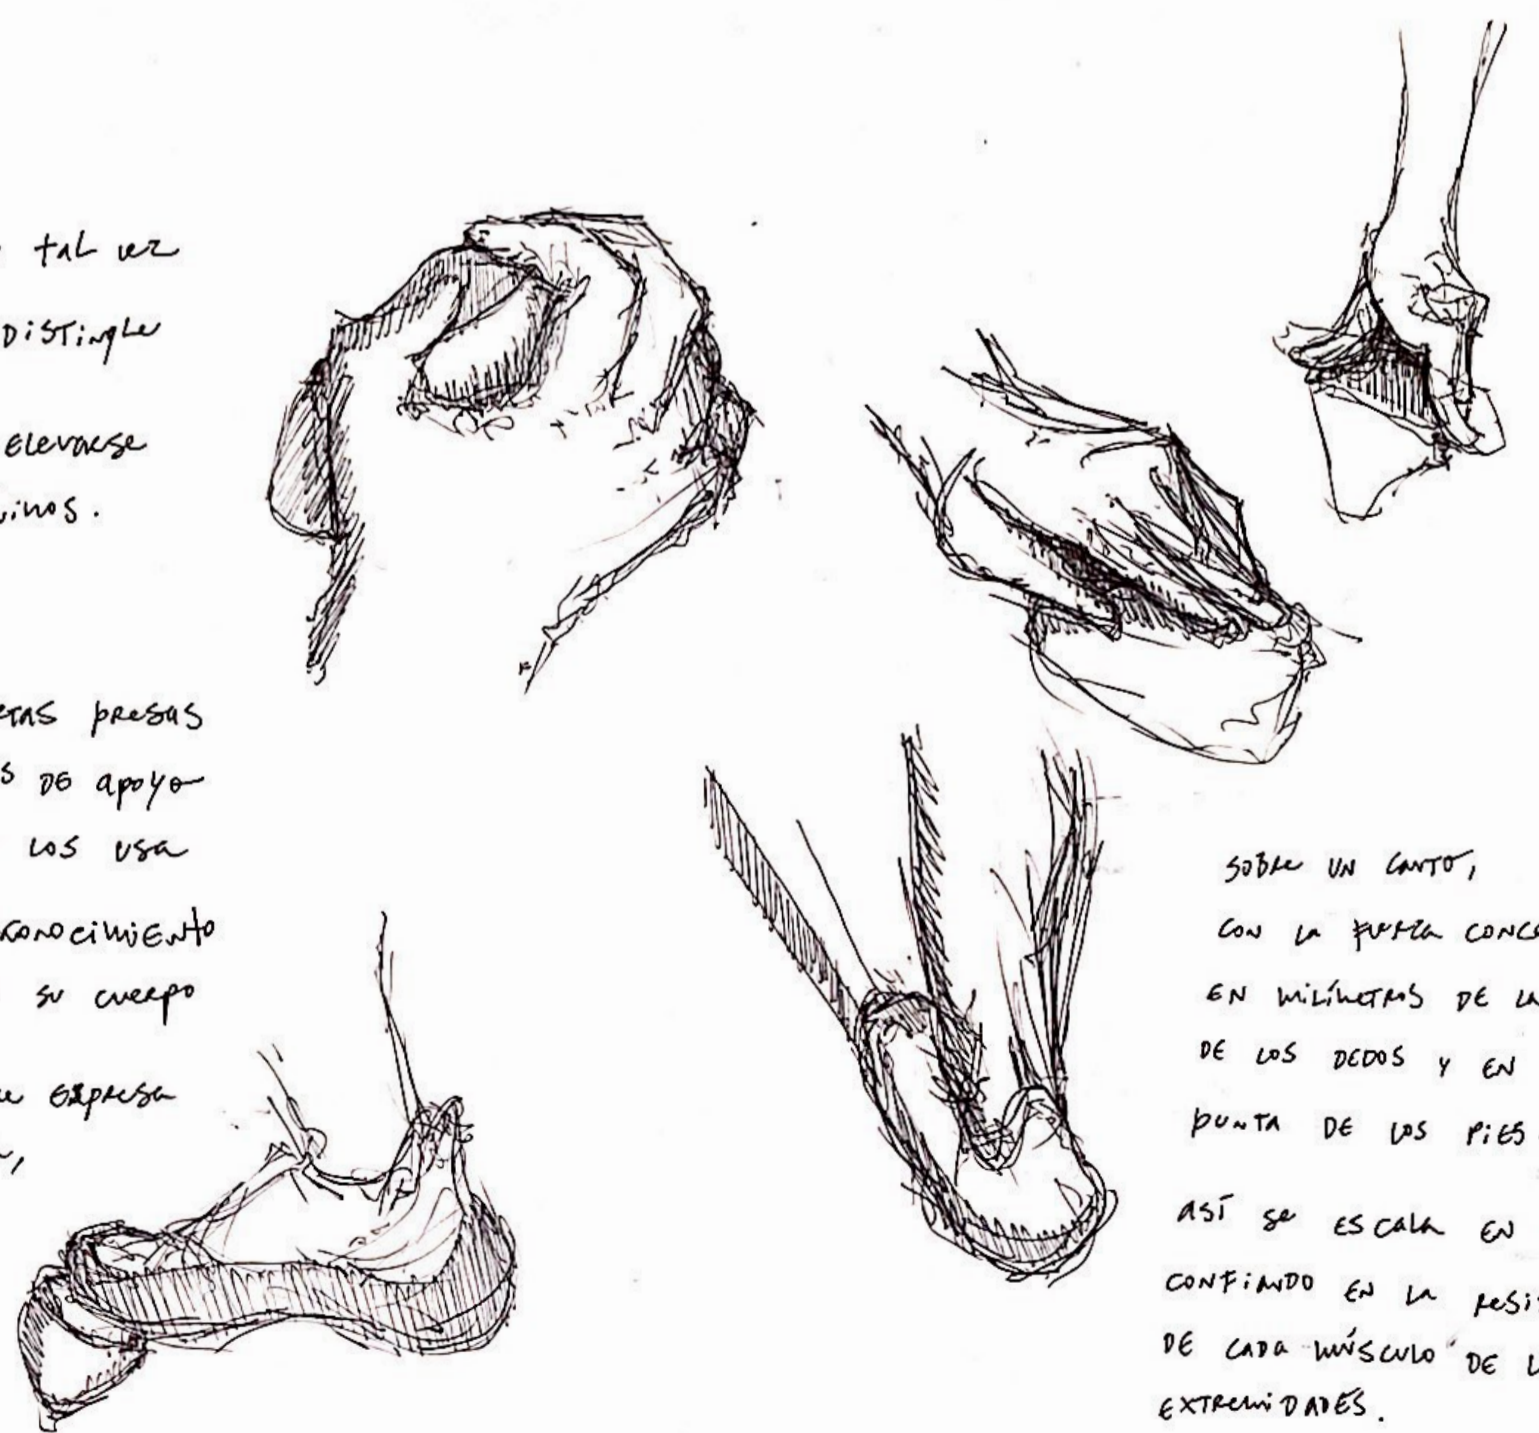 tal vez
DISTINGUE
ELEVARSE
presas
DE apoyo
LOS USA
conocimiento
su cuerpo
expresa
SOBRE UN CANTO,
CON LA FUERZA CONCE
EN MILÍMETROS DE LA
DE LOS DEDOS Y EN
PUNTA DE LOS PIES
ASÍ se ESCALA EN
CONFIANDO EN LA RESIS
DE CADA MÚSCULO DE L
EXTREMIDADES.